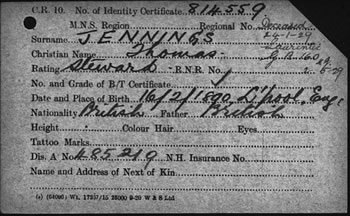 C.R. 10. No. of Identity Certificate. 814559
M.N.S. Region Regional No. Deceased
24-1-29
Surname JENNINGS
Christian Name Thomas
Rating Steward R.N.R. No. 5-29
No. and Grade of B/T Certificate
Date and Place of Birth 16/2/1890, L'pool, Eng
Nationality British Father British
Height Colour Hair Eyes
Tattoo Marks
Dis. A No. 485219 N.H. Insurance No.
Name and Address of Next of Kin
(4) (64096) Wt. 17237/15 25000 9-20 W & S Ltd